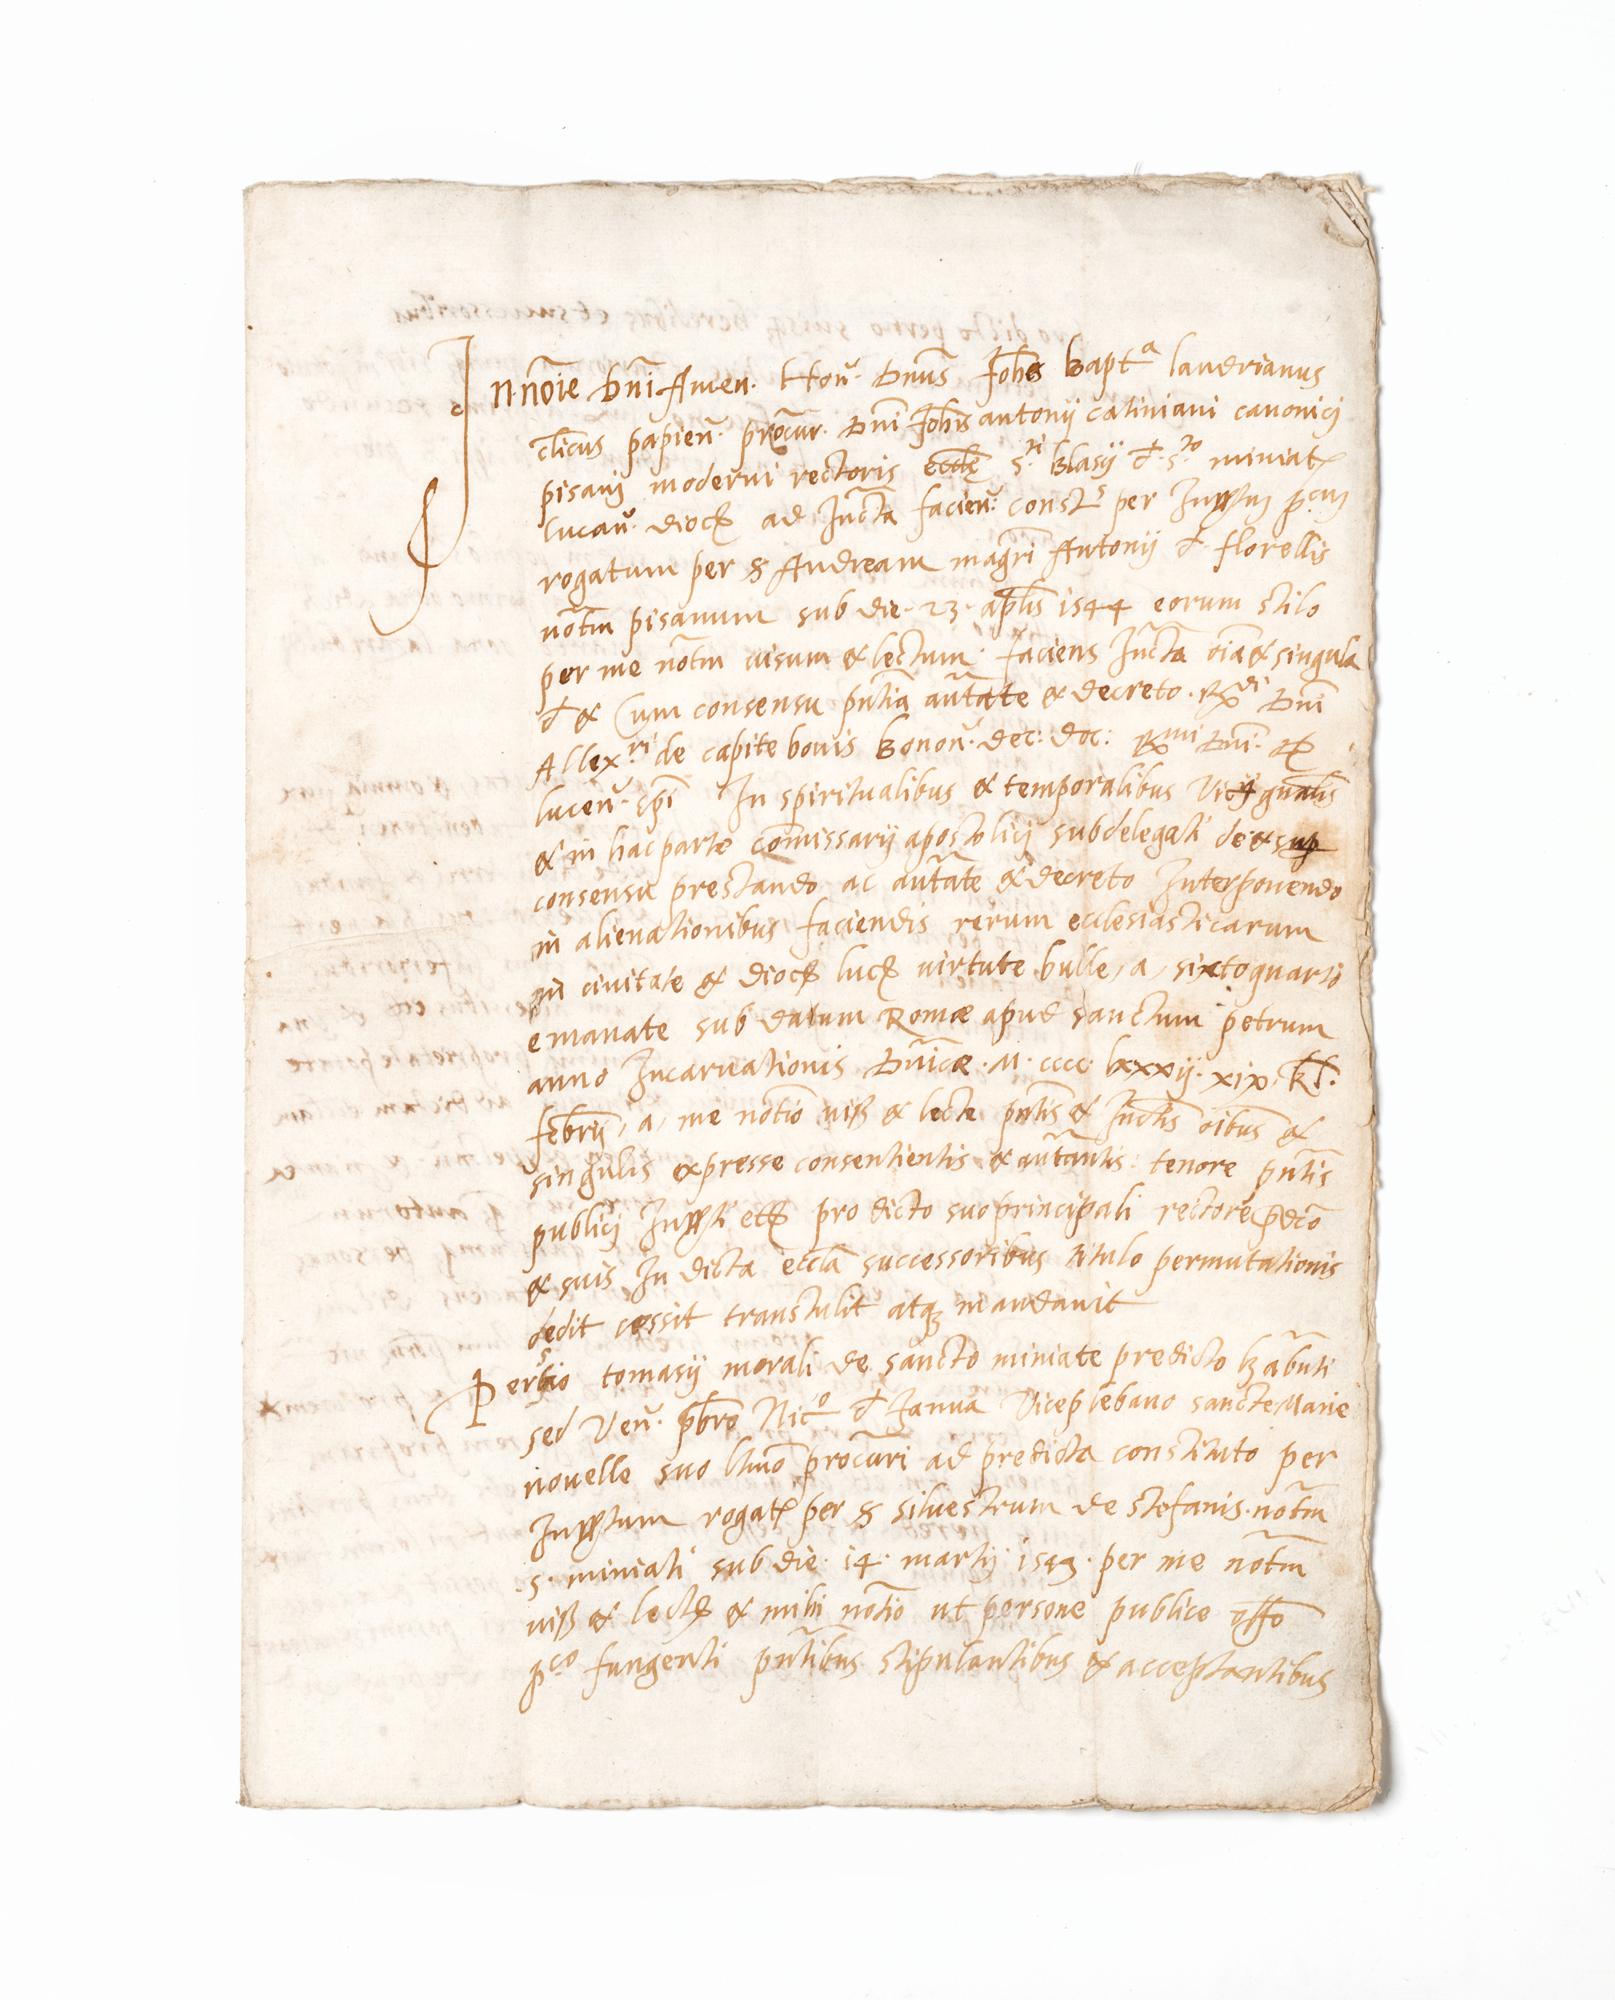 In noie dni Amen. Hon. dnus Johes Bapta landrianus
clicus papien. procur. dni Johis antonij catiniani canonici
pisani moderni rectoris eccle sti Blasij d sto miniat
lucan. dioc ad Infracta facien. const per Inst pcum
rogatum per s Andream magri Antonij d florellis
notm pisanum sub die 23 aplis 1544 eorum stilo
per me notm uisum & lectum. faciens Infracta oia & singula
d & cum consensu pntia autate & decreto Rdi dni
Allexri de capite bouis bonon. dec. doc. Rmi dni
lucen. epi In spiritualibus & temporalibus Vicarij gnalis
& in hac parte comissarij apostolici subdelegati de & sup
consensu prestando ac autate & decreto Interponendo
in alienationibus faciendis rerum ecclesiasticarum
in ciuitate & dioc luc uirtute bulle, a, sixto quarto
emanate sub datum Romæ apud sanctum petrum
anno Incarnationis dnicæ M cccc lxxxij xix kl.
febrij, a, me notio uis & lecte pntis & Infractis oibus &
singulis expresse consentientis & autantis tenore pntis
publici Insti etc pro dicto suo principali rectore pdcto
& suis In dicta eccla successoribus titulo permutationis
dedit cessit transtulit atq mandauit
Persio tomasij morali de sancto miniate predicto habnti
sed Ven. pbro Nico d Janua Viceplebano sancte Marie
nouelle suo ltimo procuri ad predicta constituto per
Instum rogat per s siluestrum de stefanis notm
s. miniati sub die 14 martij 1543 per me notm
uis & lect & mihi notio ut persone publice offo
pco fungenti pntibus stipulantibus & acceptantibus